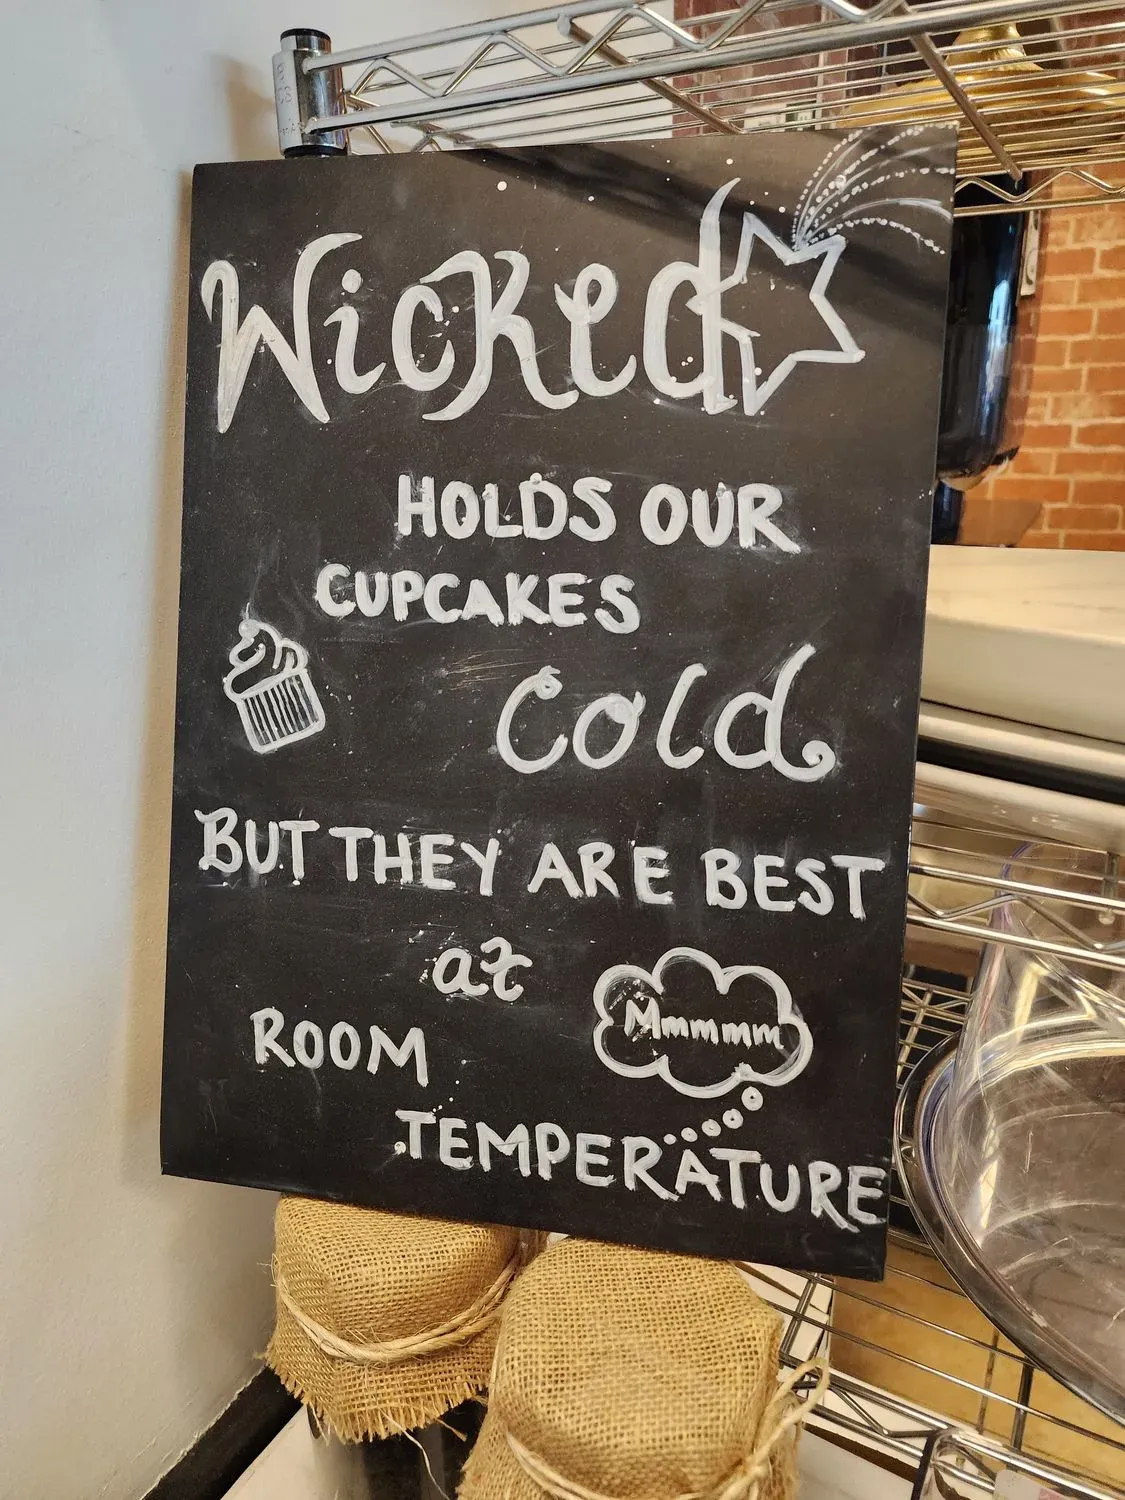 Wicked
HOLDS OUR
CUPCAKES
Cold
BUT THEY ARE BEST
at
Mmmmmm
ROOM
TEMPERATURE